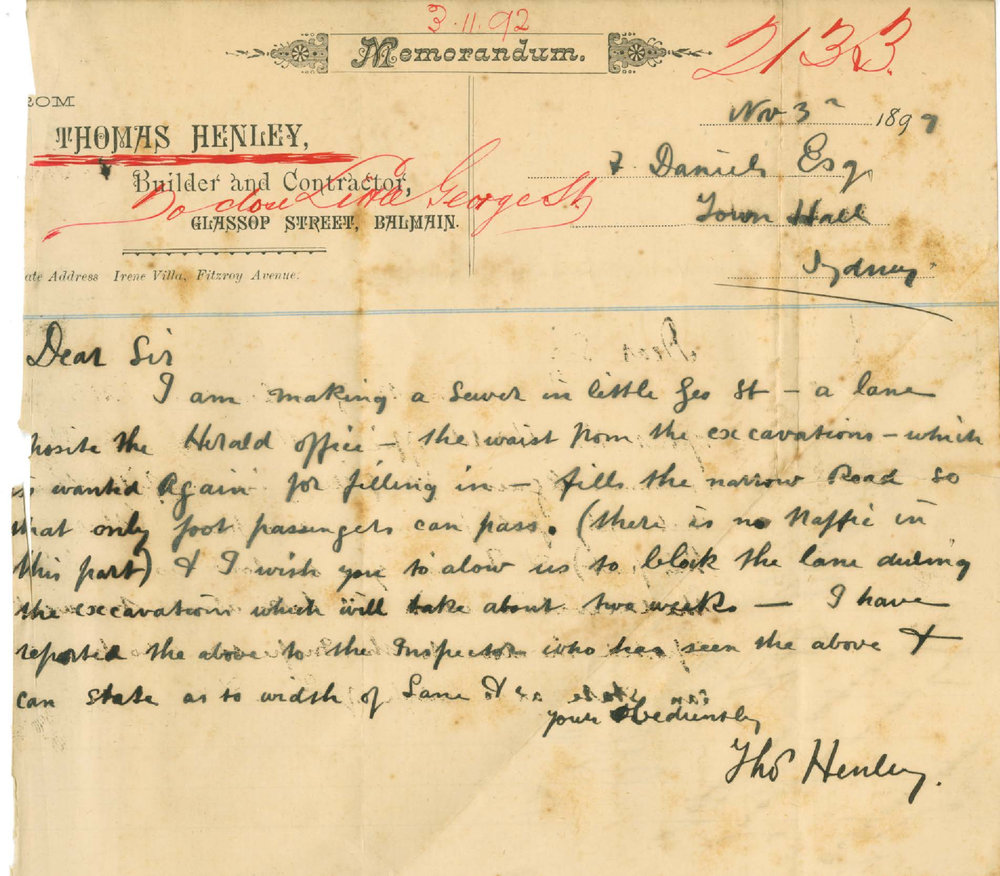 3.11.92
Memorandum.
2133
ROM
Nov 3ʳ 1897
THOMAS HENLEY,
Builder and Contractor,
To close Little George St
GLASSOP STREET, BALMAIN.
ate Address Irene Villa, Fitzroy Avenue.
Daniels Esq
Town Hall
Sydney
Dear Sir
I am making a sewer in little Geo St – a lane
posite the Herald office – the waist from the excavations – which
is wanted Again for filling in – fills the narrow Road so
that only foot passengers can pass. (there is no traffic in
this part) & I wish you to alow us to block the lane during
the excavation which will take about two weeks – I have
reported the above to the Inspector who has seen the above &
can state as to width of Lane &c
yours Obediently
Thos Henley.